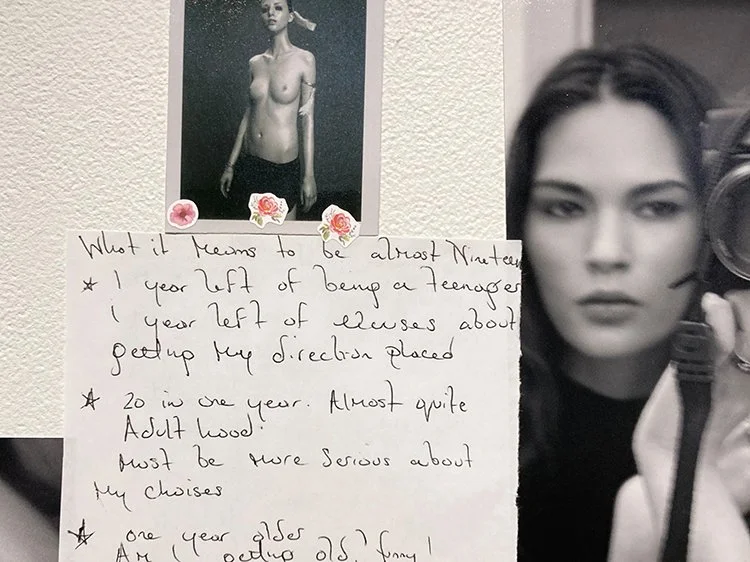 What it Means to be almost Nineteen
* 1 year left of being a teenager
1 year left of excuses about
getting my direction placed
* 20 in one year. Almost quite
Adulthood.
Must be more serious about
My choises
* one year older
Am I getting old, funny!